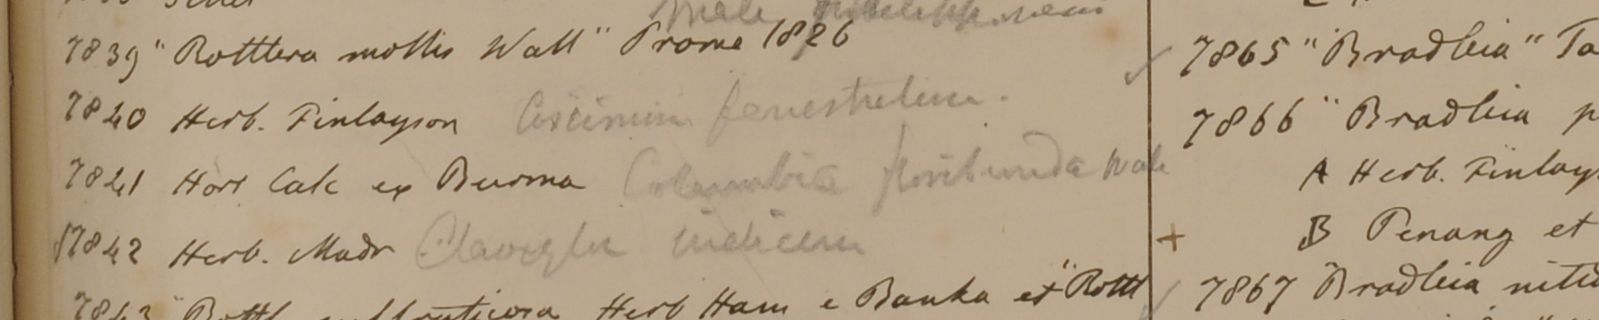 7839 "Rottlera mollis Wall" Prome 1826
7840 Herb. Finlayson Coscinium fenestratum.
7841 Hort Calc ex Burma Columbia floribunda Wall
7842 Herb. Madr indicum
7843 Rottl Herb Ham e Banka et "Rottl
7865 "Bradleia" Ta
7866 "Bradleia p
A Herb. Finlays
B Penang et
7867 Bradleia nitid